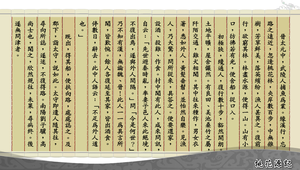 晉太元中，武陵人捕魚為業，緣溪行，忘
路之遠近。忽逢桃花林，夾岸數百步，中無雜
樹，芳草鮮美，落英繽紛。漁人甚異之，復前
行，欲窮其林。林盡水源，便得一山。山有小
口，彷彿若有光，便舍船，從口入。
初極狹，纔通人；復行數十步，豁然開朗。
土地平曠，屋舍儼然。有良田、美池、桑、竹之屬，
阡陌交通，雞犬相聞。其中往來種作，男女衣
著，悉如外人；黃髮垂髫，並怡然自樂。見漁
人，乃大驚，問所從來，具答之。便要還家，
設酒、殺雞、作食。村中聞有此人，咸來問訊。
自云：「先世避秦時亂，率妻子邑人來此絕境，
不復出焉；遂與外人間隔。」問「今是何世？」
乃不知有漢，無論魏、晉！此人一一為具言所
聞，皆歎惋。餘人各復延至其家，皆出酒食。
停數日，辭去。此中人語云：「不足為外人道
也。」
既出，得其船，便扶向路，處處誌之。及
郡下，詣太守，說如此。太守即遣人隨其往，
尋向所誌，遂迷不復得路。南陽劉子驥，高
尚士也，聞之，欣然規往，未果，尋病終。後
遂無問津者。
桃花源記